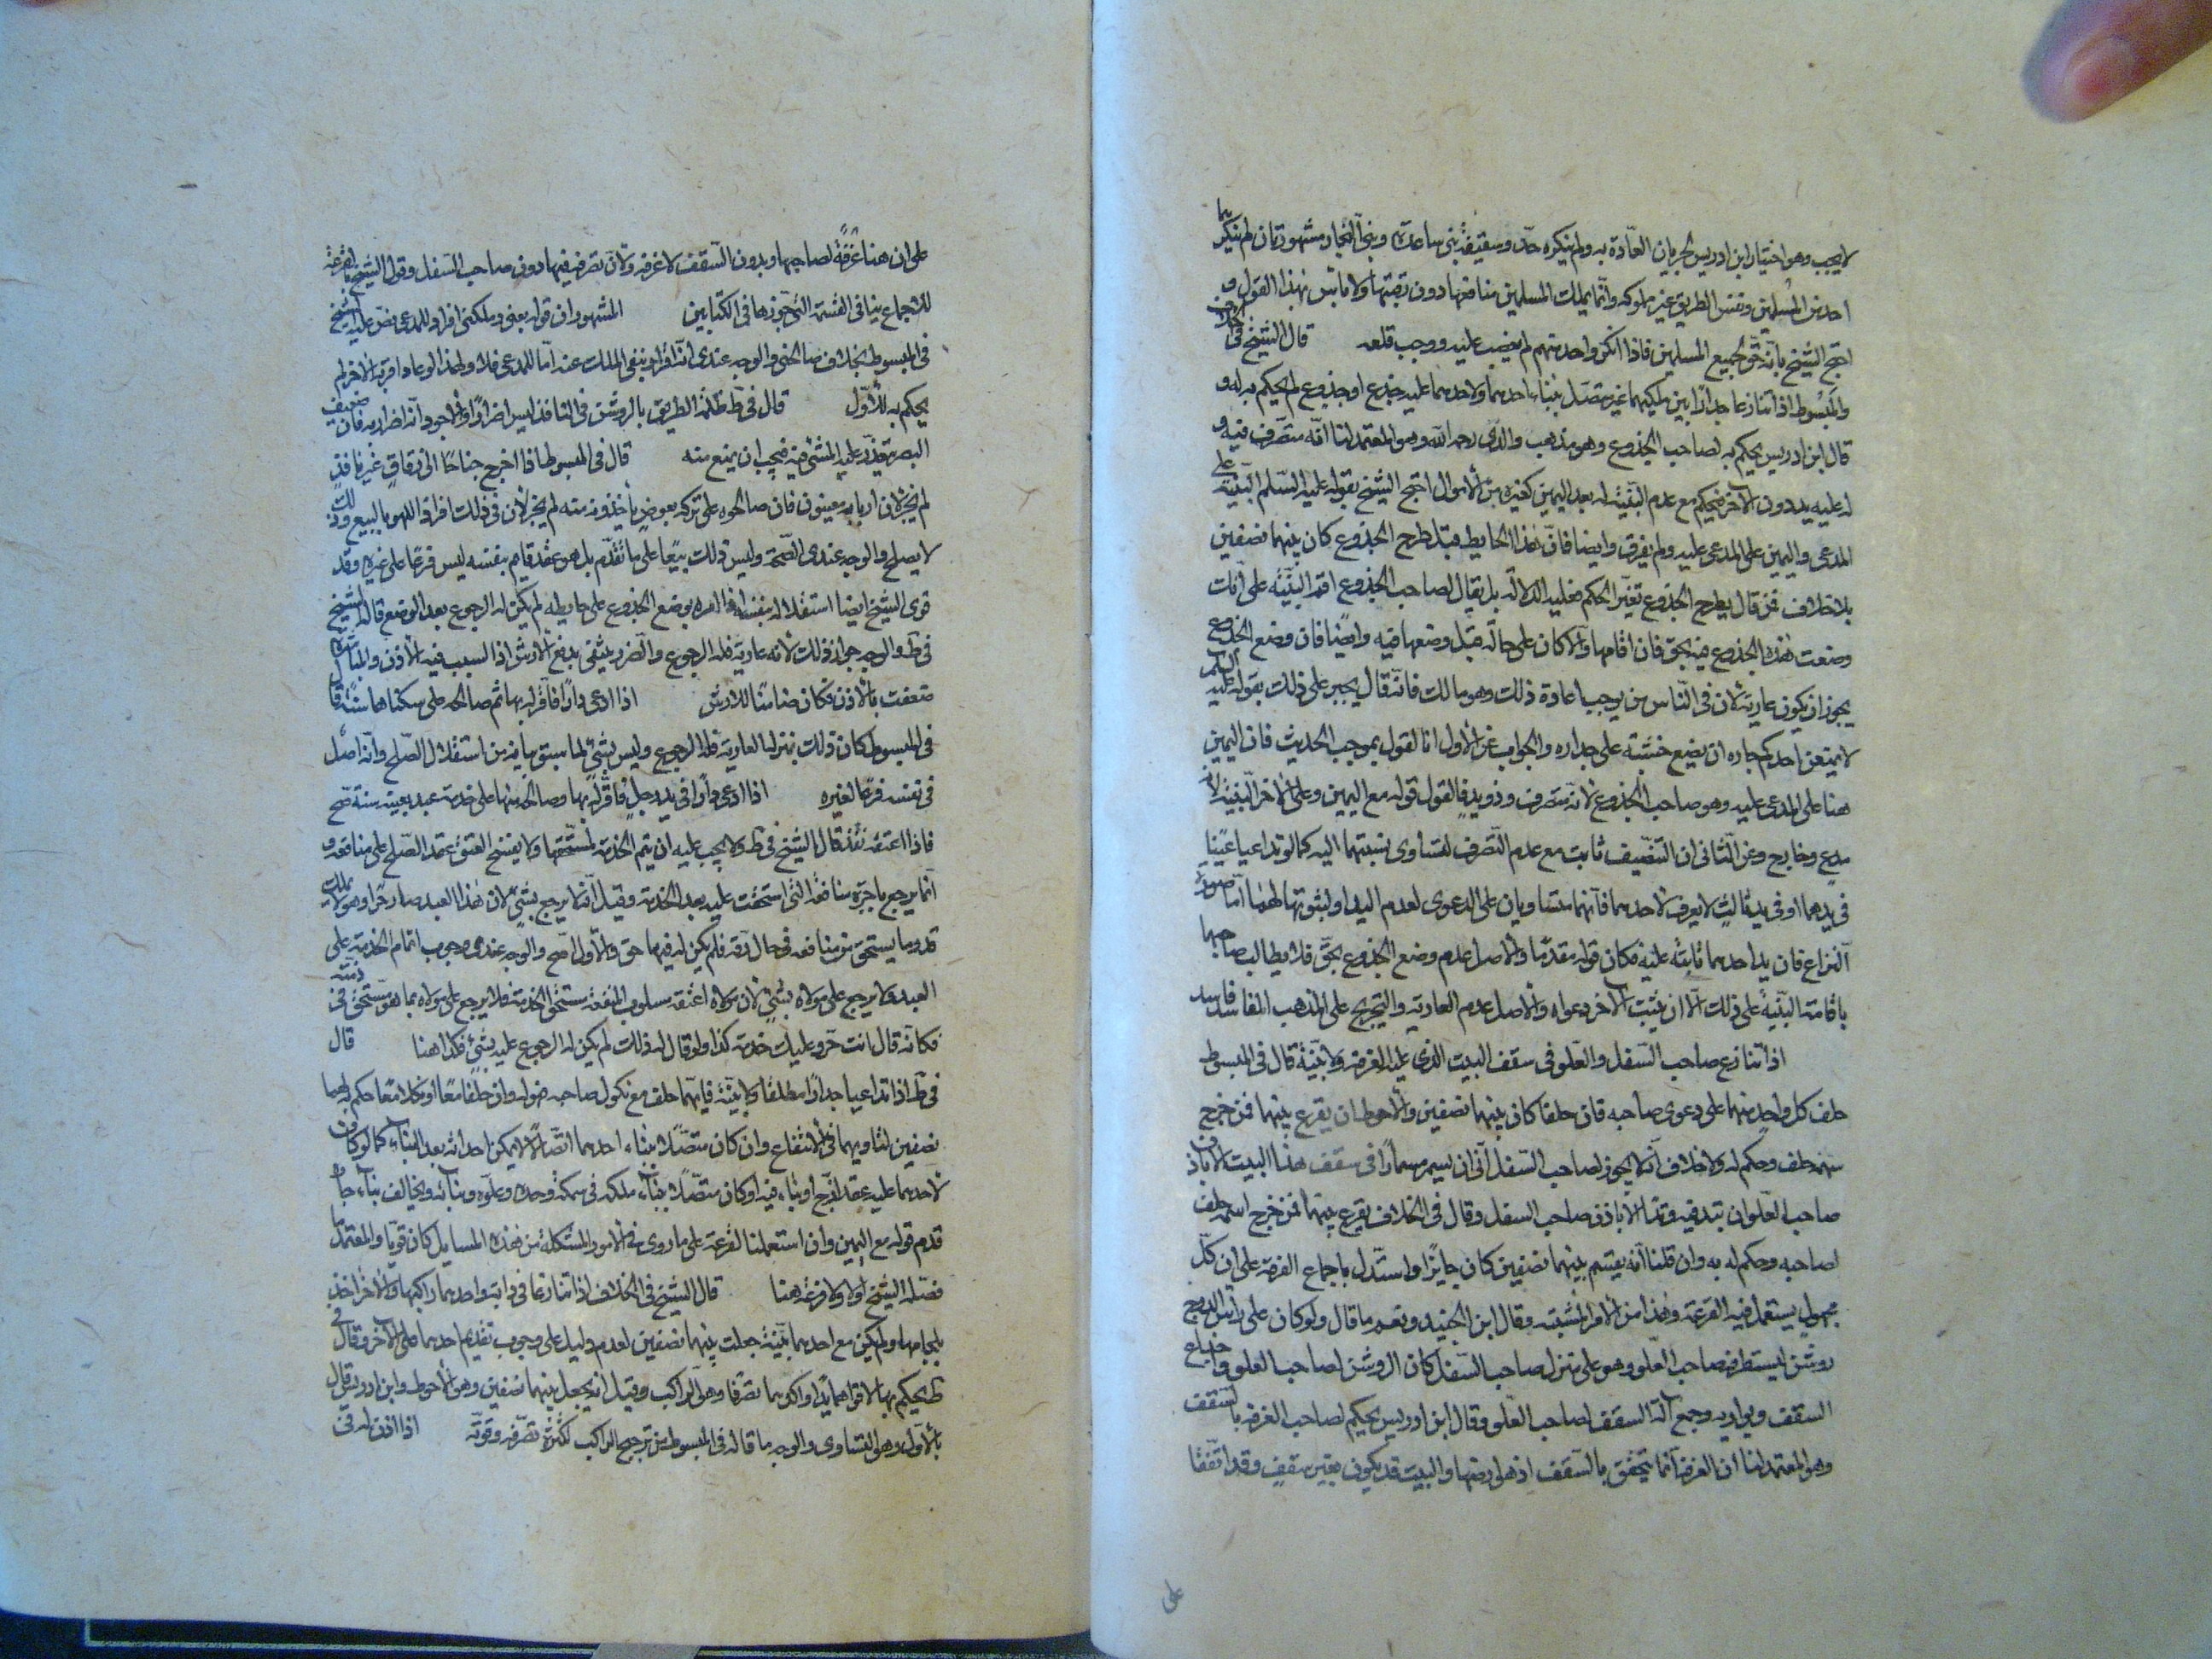 لا يجب وهو اختيار ابن ادريس لجريان العادة به ولم ينكره احد وسقيفة بني ساعدة وبني النجار مشهورتان لم ينكرهما
احد من المسلمين ونفس الطريق غير مملوكه وانما يملك المسلمين منافعها دون رقبتها ولا باس بهذا القول و
احتج الشيخ بانه حق لجميع المسلمين فاذا انكر واحد منهم لم يغصب عليه ووجب قلعه قال الشيخ في الخلاف
والمبسوط اذا تنازعا جدارا بين ملكيهما غير متصل ببناء احدهما ولاحدهما عليه جذع او جذوع لم يحكم به له و
قال ابن ادريس يحكم به لصاحب الجذوع وهو مذهب والدي رحمه الله وهو المعتمد لنا انه متصرف فيه و
له عليه يد دون الاخر فيحكم مع عدم البينة له بعد اليمين كغيره من الاموال احتج الشيخ بقوله عليه السلم البينة على
المدعي واليمين على المدعى عليه ولم يفرق وايضا فان هذا الحايط قبل طرح الجذوع كان بينهما نصفين
بلا خلاف فمن قال يطرح الجذوع تغير الحكم فعليه الدلالة بل يقال لصاحب الجذوع اقم البينة على انك
وضعت هذه الجذوع فيه بحق فان اقامها والا كان على حاله قبل وضعها فيه وايضا فان وضع الجذوع
يجوز ان يكون عارية لان في الناس من يوجب اعادة ذلك وهو مالك فانه قال يجبر على ذلك بقوله عليه السلم
لا يمنعن احدكم جاره ان يضع خشبة على جداره والجواب عن الاول انا لقول بموجب الحديث فان اليمين
هنا على المدعى عليه وهو صاحب الجذوع لانه متصرف وذو يد فالقول قوله مع اليمين وعلى الاخر البينة لانه
مدع وخارج وعن الثاني ان التنصيف ثابت مع عدم التصرف لتساوي نسبتهما اليه كما لو تداعيا عينا
في يدهما او في يد ثالث لا يعرف لاحدهما فانهما متساويان على الدعوى لعدم اليد او لثبوتها لهما اما صورة
النزاع فان يد احدهما ثابتة عليه فكان قوله مقدما والاصل عدم وضع الجذوع بحق فلا يطالب صاحبها
باقامة البينة على ذلك الا ان يثبت الاخر دعواه والاصل عدم العارية والتخريج على المذهب الفاسد فاسد
اذا تنازع صاحب السفل والعلو في سقف البيت الذي عليه الغرفة ولا بينة قال في المبسوط
حلف كل واحد منهما على دعوى صاحبه فان حلفا كان بينهما نصفين والاحوط ان يقرع بينهما فمن خرج
سهمه حلف وحكم له ولا خلاف انه لا يجوز لصاحب السفل ان يسمر مسمارا في سقف هذا البيت الا باذن
صاحب العلو ان يتد فيه وتدا الا باذن صاحب السفل وقال في الخلاف يقرع بينهما فمن خرج اسمه حلف
لصاحبه وحكم له به وان قلنا انه يقسم بينهما نصفين كان جايزا واستدل باجماع الفرقة على ان كل
مجهول يستعمل فيه القرعة وهذا من الامر المشتبه وقال ابن الجنيد ونعم ما قال ولو كان على راس الدرج
روشن ليستطرقه صاحب العلو وهو على منزل صاحب السفل كان الروشن لصاحب العلو واجناح
السقف وبواريه وجمع الة السقف لصاحب العلو وقال ابن ادريس يحكم لصاحب الغرفة بالسقف
وهو المعتمد لنا ان الغرفة انما يتحقق بالسقف اذ هو ارضها والبيت قد يكون بغير سقف وقد اتفقا
على
على ان هنا غرفة لصاحبها وبدون السقف لا غرفة ولان تصرفه فيها دون صاحب السفل وقول الشيخ بالقرعة
للاجماع ينافي القسمة التي جوزها في الكتابين المشهور ان قوله بعني وملكني اقرار للمدعي نص عليه الشيخ
في المبسوط بخلاف صالحني والوجه عندي انه اقرار بنفي الملك عنه اما للمدعي فلا ولهذا لو عاد اقر به لاخر لم
يحكم به للاول قال في ط ظلمة الطريق بالروشن في النافذ ليس اضرارا والاجود انه اضرار به فان ضعيف
البصر يتعذر عليه المشي فيه فيجب ان يمنع منه قال في المبسوط اذا اخرج جناحا الى زقاق غير نافذ
لم يجز لان اربابه معينون فان صالحوه على تركه بعوض ياخذونه منه لم يجز لان في ذلك افراد الهواء بالبيع وذلك
لا يصلح والوجه عندي الصحة وليس ذلك بيعا على ما تقدم بل هو عقد قايم بنفسه ليس فرعا على غيره وقد
قوى الشيخ ايضا استقلاله بنفسه اذا امره بوضع الجذوع على حايطه لم يكن له الرجوع بعد الوضع قاله الشيخ
في ط والوجه جواز ذلك لانه عارية فله الرجوع والضرر ينتفي بدفع الارش اذا السبب فيه الاذن والمباشرة
ضعفت بالاذن فكان ضامنا للارش اذا ادعى دارا فاقر له بها ثم صالحه على سكناها سنة قال
في المبسوط كان ذلك بمنزلة العارية فله الرجوع وليس بشئ لما سبق بيانه من استقلال الصلح وانه اصل
في نفسه فرعا لغيره اذا ادعى دارا في يد رجل فاقر له بها وصالحه منها على خدمة عبد بعينه سنة صح
فاذا اعتقه نفذ قال الشيخ في ط ولا يجب عليه ان يتم الخدمة لمستحقها ولا يفسخ العتق عقد الصلح على منافعه و
انما يرجع باجرة منافعه التي استحقت عليه بعد الخدمة وقيل انه لا يرجع بشئ لان هذا العبد صار حرا وهو لا يملك
قدر ما يستحق من منافعه في حال رقه فلم يكن له فيها حق والاول اصح والوجه عندي وجوب اتمام الخدمة على
العبد ولا يرجع على مولاه بشئ لان مولاه اعتقه مسلوب المنفعة مستحق الخدمة فلا يرجع على مولاه بما هو مستحق في ذمته
فكانه قال انت حر وعليك خدمة كذا ولو قال له ذلك لم يكن له الرجوع عليه بشئ فكذا هنا قال
في ط اذا تداعيا جدارا مطلقا ولا بينة فايهما حلف مع نكول صاحبه فهو له وان حلفا معا او نكلا معا حكم به لهما
نصفين لتساويهما في الانتفاع وان كان متصلا ببناء احدهما اتصالا لا يمكن احداثه بعد البناء كما لو كان
لاحدهما عليه عقد ازج او بناء فيه او كان متصلا ببناء ملكه في سمكه وحده وعلوه وبنائه ويخالف بناء جاره
قدم قوله مع اليمين وان استعملنا القرعة على ما روي في الامور المشكلة من هذه المسايل كان قويا والمعتمد ما
فصله الشيخ اولا ولا قرعة هنا قال الشيخ في الخلاف اذا تنازعا في دابة واحدهما راكبها والاخر اخذ
بلجامها ولم يكن مع احدهما بينة جعلت بينهما نصفين لعدم دليل على وجوب تقديم احدهما على الاخر وقال في
ط يحكم بها لاقواهما يدا واكدهما تصرفا وهو الراكب وقيل انه يجعل بينهما نصفين وهو الاحوط وابن ادريس قال
بالاول وهو التساوي والوجه ما قاله في المبسوط من ترجيح الراكب لكثرة تصرفه وقوته اذا اذن له في